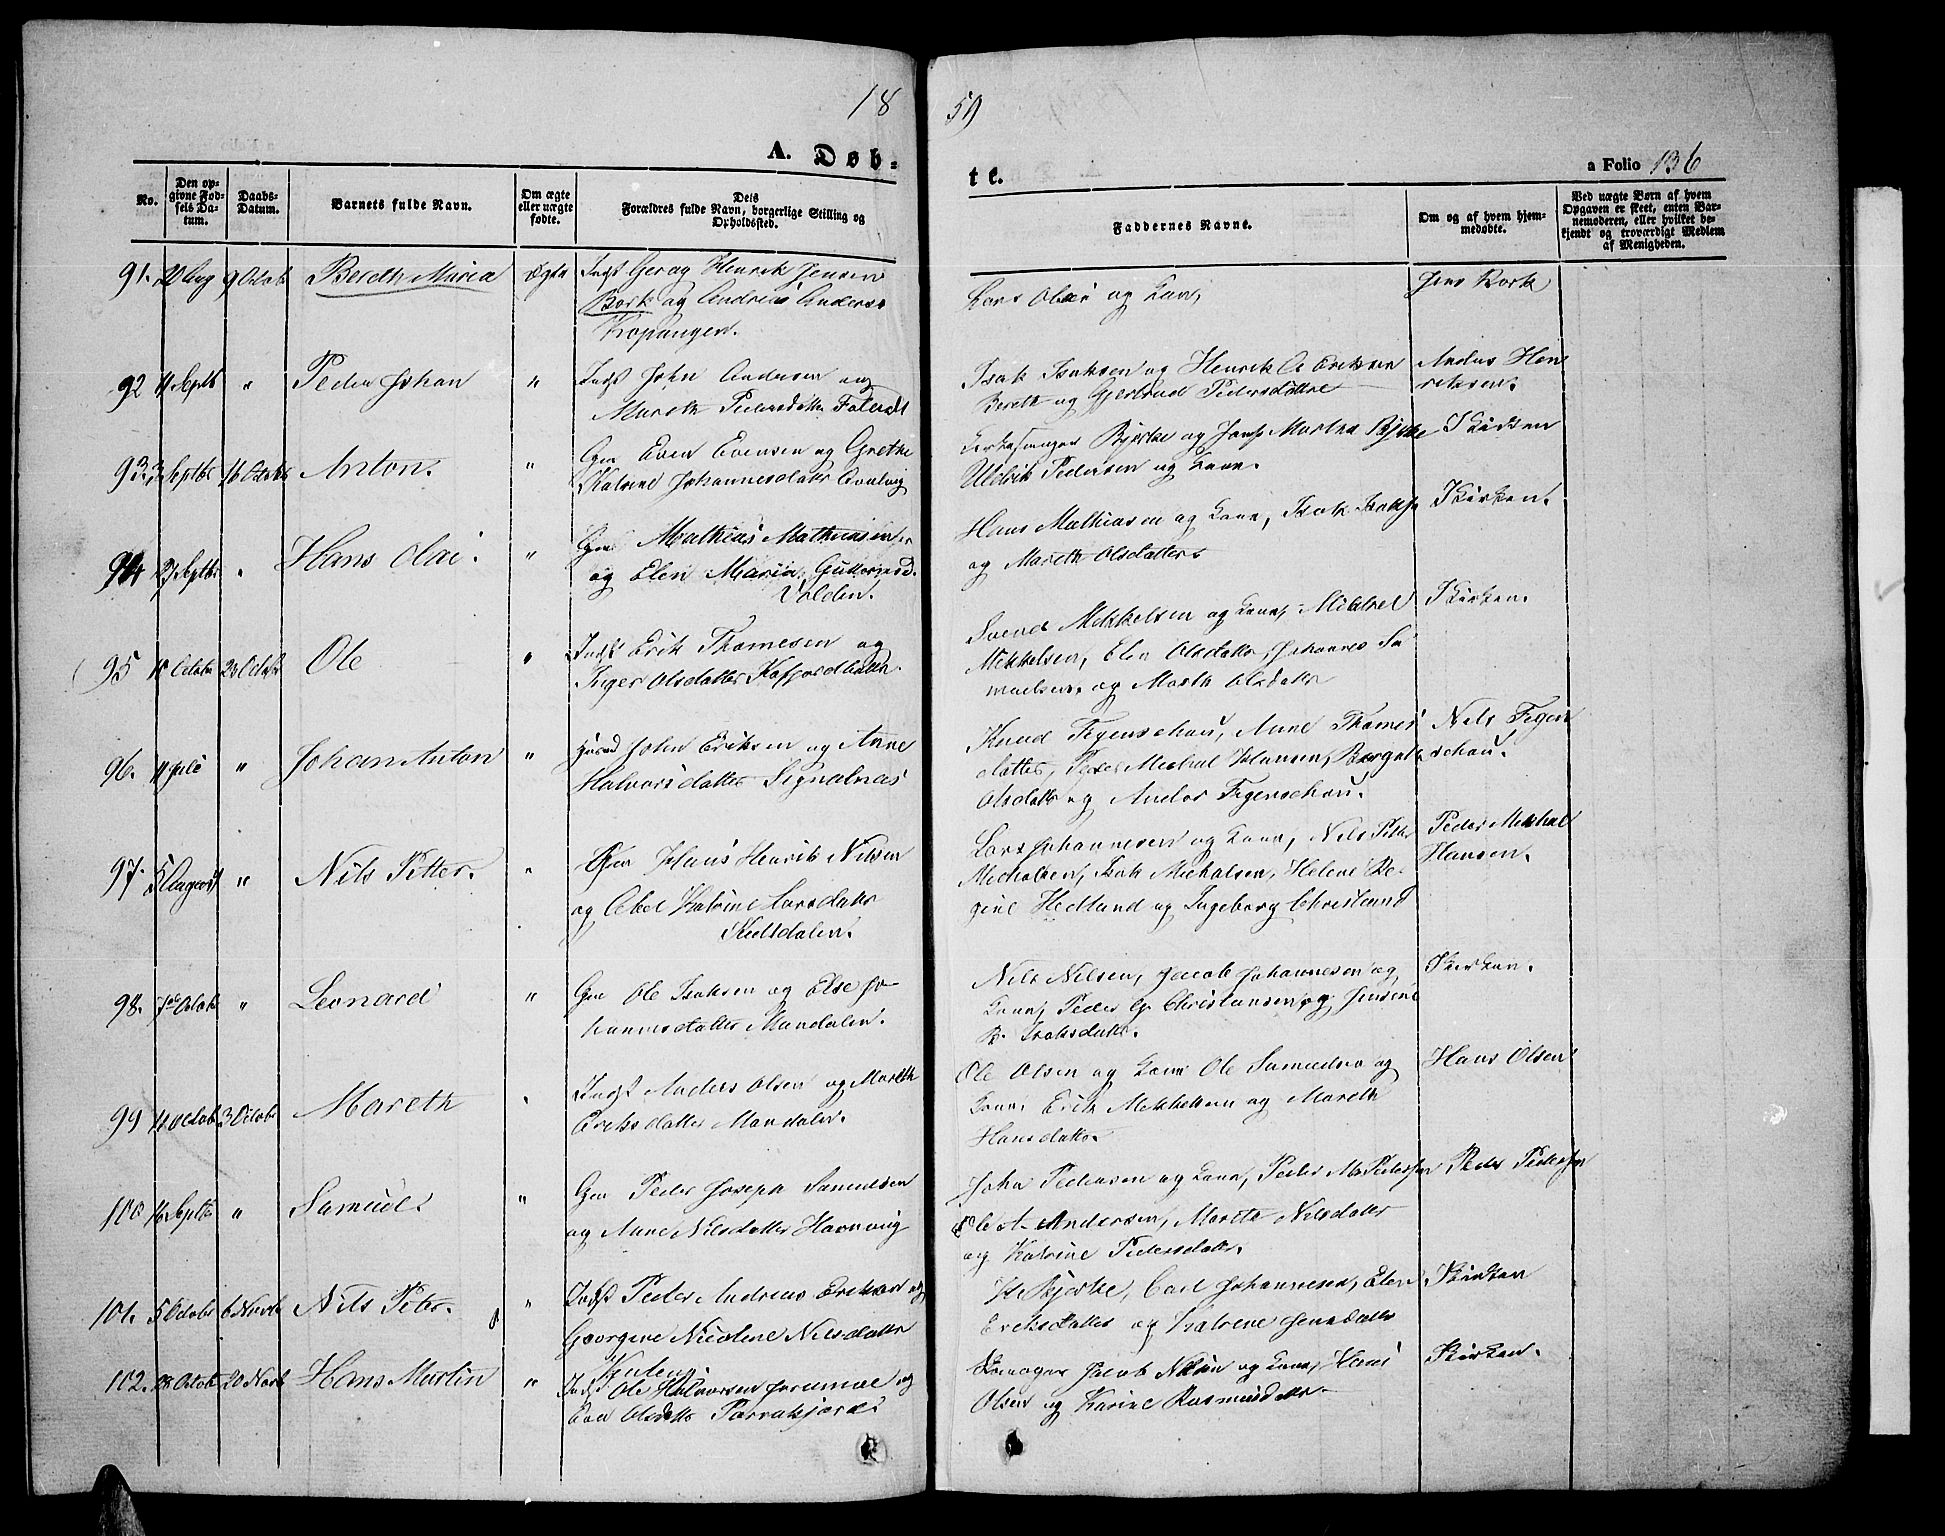 18
59
A. Døb-
te.
a Folio 136
No.
Den op-
givne Fød-
sels Da-
tum.
Daabs-
Datum.
Barnets fulde Navn.
Om ægte
eller uægte
fødte.
Dets
Forældres fulde Navn, borgerlige Stilling og
Opholdssted.
Faddernes Navne.
Om og af hvem hjem-
medøbte.
Ved uægte Børn af hvem
Opgaven er skeet, enten Bar-
nemoderen, eller hvilket be-
kjendt og troværdigt Medlem
af Menigheden.
91. 20 Aug 9 Octob Bereth Maria ægte Indst Henrik Jensen
Bork og Andrea Anders
Kopangen.
Lars Olsen og Kone,
Jens Bork
92 11 Septb " Peder Johan " Indst John Andersen og
Mareth Pedersdatter
Isak Isaksen og Henrik A Eriksen
Bereth og Gjertrud Pedersdattre
Anders Hen
riksen.
93. 3 Septbr 16 Octobr Anton. " Gm Even Evensen og Grethe
Katrine Johannesdatter
Kirkesanger Bjerke og Jomf Martha Bjerke
Uldrik Pedersen og Kone.
Kirken
94 27 Septbr " Hans Olai. " Gm Mathias Mathiasen
og Elen Maria Guttormsd.
Volden.
Hans Mathiasen og Kone, Isak Isaksen
og Mareth Olsdatter
Kirken.
95 18 Octobr 23 Octobr Ole " Indst Erik Thomesen og
Inger Olsdatter Kafjordbotn.
Svend Mikkelsen og Kone, Mikkel
Mikkelsen, Elen Olsdatter, Johannes Sa
muelsen og Mareth Olsdatter
Kirken.
96. 11 Juli " Johan Anton " John Eriksen og Anne
Halvorsdatter Signalnæs
Knud Figenschou, Anne Thomes
datter, Peder Michal Hansen, Berget
Olsdatter og Anders Figenschou.
Nils Figen
schou.
97. 5 August " Nils Petter. " Gm Hans Henrik Nilsen
og Abel Katrine Larsdatter
Skibsdalen.
Lars Johannesen og Kone, Nils Petter
Michalsen, Isak Michalsen, Helene Re-
gine Hedlund og Ingeborg Christiansd
Peder Michal
Hansen.
98. Octob " Leonard " Gm Ole Isaksen og Else Jo-
hannesdatter Mandalen.
Nils Nilsen, Jacob Johannesen og
Kone, Peder G. Christiansen og Jensine
B. Isaksdatter.
Kirken.
99 11 Octob 23 Octob Mareth " Indst Anders Olsen og Mareth
Eriksdatter Mandalen.
Ole Olsen og Kone Ole Samuelsen og
Kone, Erik Mikkelsen og Mareth
Hansdatter
Hans Olsen
100 16 Septbr " Samuel. " Gm Peder Joseph Samuelsen
og Anne Nilsdatter Havnvig
John Pedersen og Kone, Peder M Pedersen
Ole A. Andersen, Marete Nilsdatter
og Katrine Pedersdatter.
Peder Pedersen
101. 5 Octobr 6 Novbr Nils Peter. " Indst Peder Andreas Eriksen og
Georgine Nicoline Nilsdatter
H. Bjerke, Carl Johannesen, Elen
Eriksdatter og Katrine Jensdatter
Kirken
102. 28 Octobr 20 Novb Hans Martin " Indst Ole Halvorsen og
Eva Olsdatter
Jacob Nilsen og Kone, Hans
Olsen og Karine Rasmusdatter
Kirken.